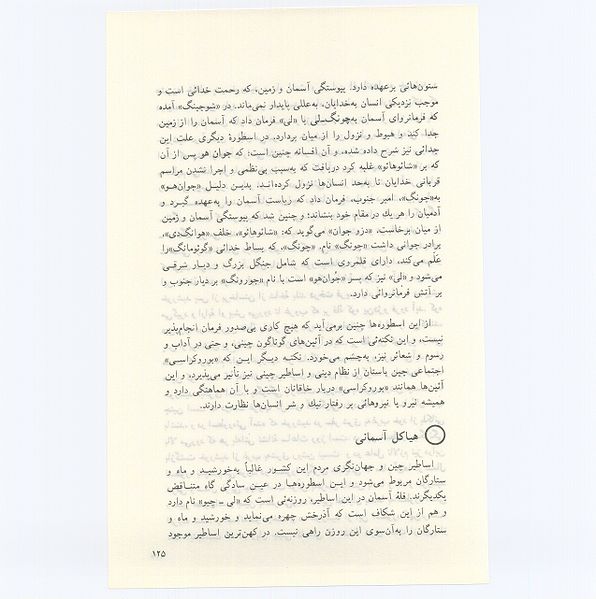 ستون‌هائی برعهده دارد. پیوستگی آسمان و زمین، که رحمت خدائی است و
موجب نزدیکی انسان به‌خدایان، به‌عللی پایدار نمی‌ماند. در «شوجینگ» آمده
که فرمانروای آسمان به‌چونگ‌لی یا «لی» فرمان داد که آسمان را از زمین
جدا کند و هبوط و نزول را از میان بردارد. در اسطورهٔ دیگری علت این
جدائی نیز شرح داده شده، و آن افسانه چنین است: که جوان هو پس از آن
که بر «شائوهائو» غلبه کرد دریافت که به‌سبب بی‌نظمی و اجرا نشدن مراسم
قربانی خدایان تا به‌حد انسان‌ها نزول کرده‌اند. بدین دلیل «جوان‌هو»
به«جونگ»، امیر جنوب، فرمان داد که ریاست آسمان را به‌عهده گیرد و
آدمیان را هر یک در مقام خود بنشاند؛ و چنین شد که پیوستگی آسمان و زمین
از میان برخاست. «دزو جوان» می‌گوید که: «شائوهائو»، خلف «هوانگ‌دی»،
برادر جوانی داشت «جونگ» نام. «جونگ»، که بساط خدائی «گوئومانگ»را
علم می‌کند، دارای قلمروی است که شامل جنگل بزرگ و دیار شرقی
می‌شود و «لی» نیز که پسر «جوان‌هو» است با نام «جورونگ» بر دیار جنوب و
بر آتش فرمانروائی دارد.
از این اسطوره‌ها چنین برمی‌آید که هیچ کاری بی‌صدور فرمان انجام‌پذیر
نیست، و این نکته‌ئی است که در آئین‌های گوناگون چینی، و حتی در آداب و
رسوم و شعائر نیز، به‌چشم می‌خورد. نکته دیگر این که «بوروکراسی»
اجتماعی چین باستان از نظام دینی و اساطیر چینی نیز تأثیر می‌پذیرد، و این
آئین‌ها همانند «بوروکراسی» دربار خاقانان است و با آن هماهنگی دارد و
همیشه نیرو یا نیروهائی بر رفتار نیك و شر انسان‌ها نظارت دارند.
هیاکل آسمانی
اساطیر چین و جهان‌نگری مردم این کشور غالباً به‌خورشید و ماه و
ستارگان مربوط می‌شود و این اسطوره‌ها در عین سادگی گاه متناقض
یکدیگرند. قلهٔ آسمان در این اساطیر، روزنه‌ئی است که «لی ـ چیو» نام دارد
و هم از این شکاف است که آذرخش چهره می‌نماید و خورشید و ماه و
ستارگان را به‌آن‌سوی این روزن راهی نیست. در کهن‌ترین اساطیر موجود
۱۲۵